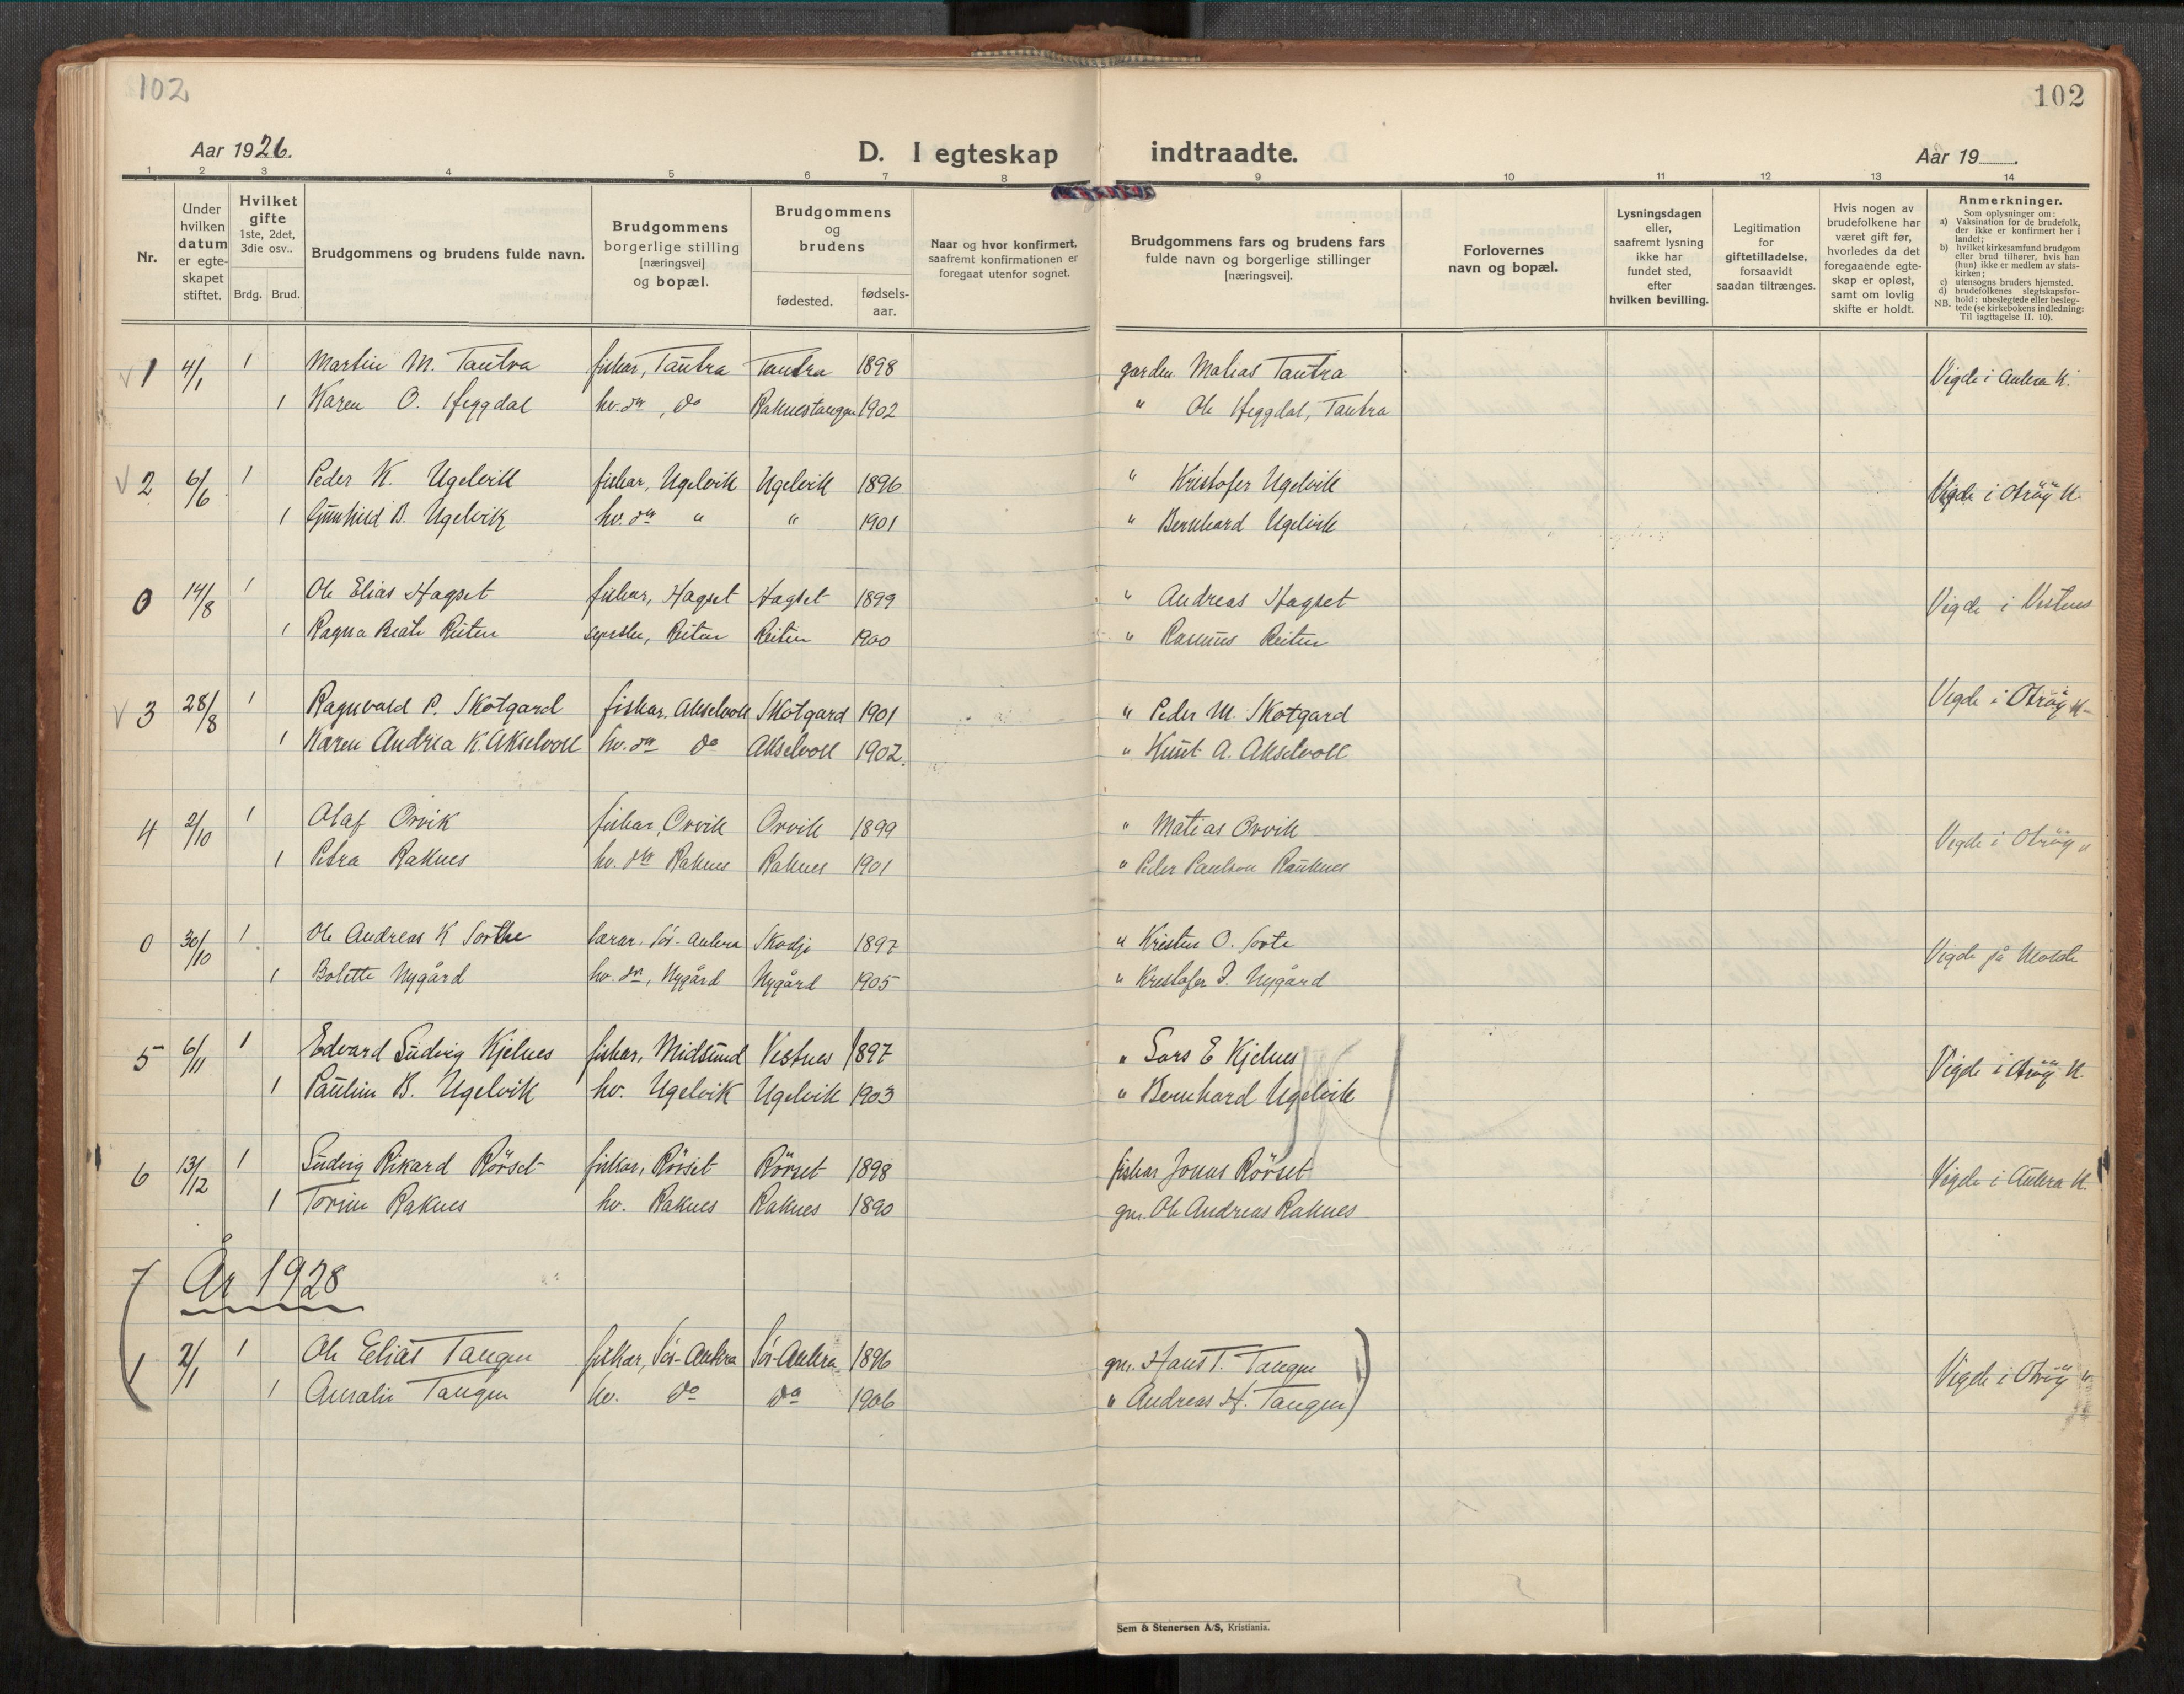 102
102
Aar 1926.
D. I egteskap indtraadte.
Aar 19
1 2 3 4 5 6 7 8 9 10 11 12 13 14
Nr.
Under hvilken datum er egte-skapet stiftet.
Hvilket gifte 1ste, 2det, 3die osv..
Brdg. Brud.
Brudgommens og brudens fulde navn.
Brudgommens borgerlige stilling [næringsvei] og bopæl.
Brudgommens og brudens
fødested.
fødsels-aar.
Naar og hvor konfirmert, saafremt konfirmationen er foregaat utenfor sognet.
Brudgommens fars og brudens fars fulde navn og borgerlige stillinger [næringsvei].
Forlovernes navn og bopæl.
Lysningsdagen eller, saafremt lysning ikke har fundet sted, efter hvilken bevilling.
Legitimation for giftetilladelse, forsaavidt saadan tiltrænges.
Hvis nogen av brudefolkene har været gift før, hvorledes da det foregaaende egte-skap er opløst, samt om lovlig skifte er holdt.
Anmerkninger.
Som oplysninger om:
a) Vaksination for de brudefolk, der ikke er konfirmert her i landet;
b) hvilket kirkesamfund brudgom eller brud tilhører, hvis han (hun) ikke er medlem av stats-kirken;
c) utensogns bruders hjemsted.
d) brudefolkenes slegtskapsfor-hold: ubeslegtede eller besleg-tede (se kirkebokens indledning:
NB. Til iagttagelse II. 10).
√ 1 4/1 1 Martin M. Tautra fiskar, Tautra Tautra 1898 gardm. Matias Tautra Vigde i Aukra K.
1 Karen O. Heggdal hv. dtr, do Raknestangen 1902 " Ole Heggdal, Tautra
√ 2 6/6 1 Peder K. Ugelvik fiskar, Ugelvik Ugelvik 1896 " Kristofer Ugelvik Vigde i Otrøy K.
1 Gunhild B. Ugelvik hv. dtr " " 1901 " Bernhard Ugelvik
0 14/8 1 Ole Elias Hagset fiskar, Hagset Hagset 1899 " Andreas Hagset Vigde i Vestnes
1 Ragna Beate Reiten syerske, Reiten Reiten 1900 " Rasmus Reiten
√ 3 28/8 1 Ragnvald P. Skotgard fiskar, Akselvoll Skotgard 1901 " Peder M. Skotgard Vigde i Otrøy K.
1 Karen Andrea K. Akselvoll hv. dtr do Akselvoll 1902. " Knut A. Akselvoll
4 2/10 1 Olaf Orvik fiskar, Orvik Orvik 1899 " Matias Orvik Vigde i Otrøy "
1 Petra Raknes hv. dtr Raknes Raknes 1901 " Peder Paulson Rauknes
0 30/10 1 Ole Andreas K Sorthe lærar, Sør-Aukra Skodje 1897 " Kristen O. Sorte Vigde på Molde
1 Bolette Nygård hv. dtr, Nygård Nygård 1905 " Kristofer J. Nygård
5 6/11 1 Edvard Ludvig Kjelnes fiskar, Midsund Vestnes 1897 " Lars E Kjelnes Vigde i Otrøy K.
1 Pauline B. Ugelvik hv. Ugelvik Ugelvik 1903 " Bernhard Ugelvik
6 13/12 1 Ludvig Rikard Rørset fiskar, Rørset Rørset 1898 fiskar Jonas Rørset Vigde i Aukra K.
1 Torine Raknes hv. Raknes Raknes 1890 gm. Ole Andreas Raknes
7 År 1928
1 2/1 1 Ole Elias Tangen fiskar, Sør-Aukra Sør-Aukra 1896 gm. Hans T. Tangen Vigde i Otrøy "
1 Amalie Tangen hv. do do 1906 " Andreas H. Tangen
Sem & Stenersen A/S, Kristiania.